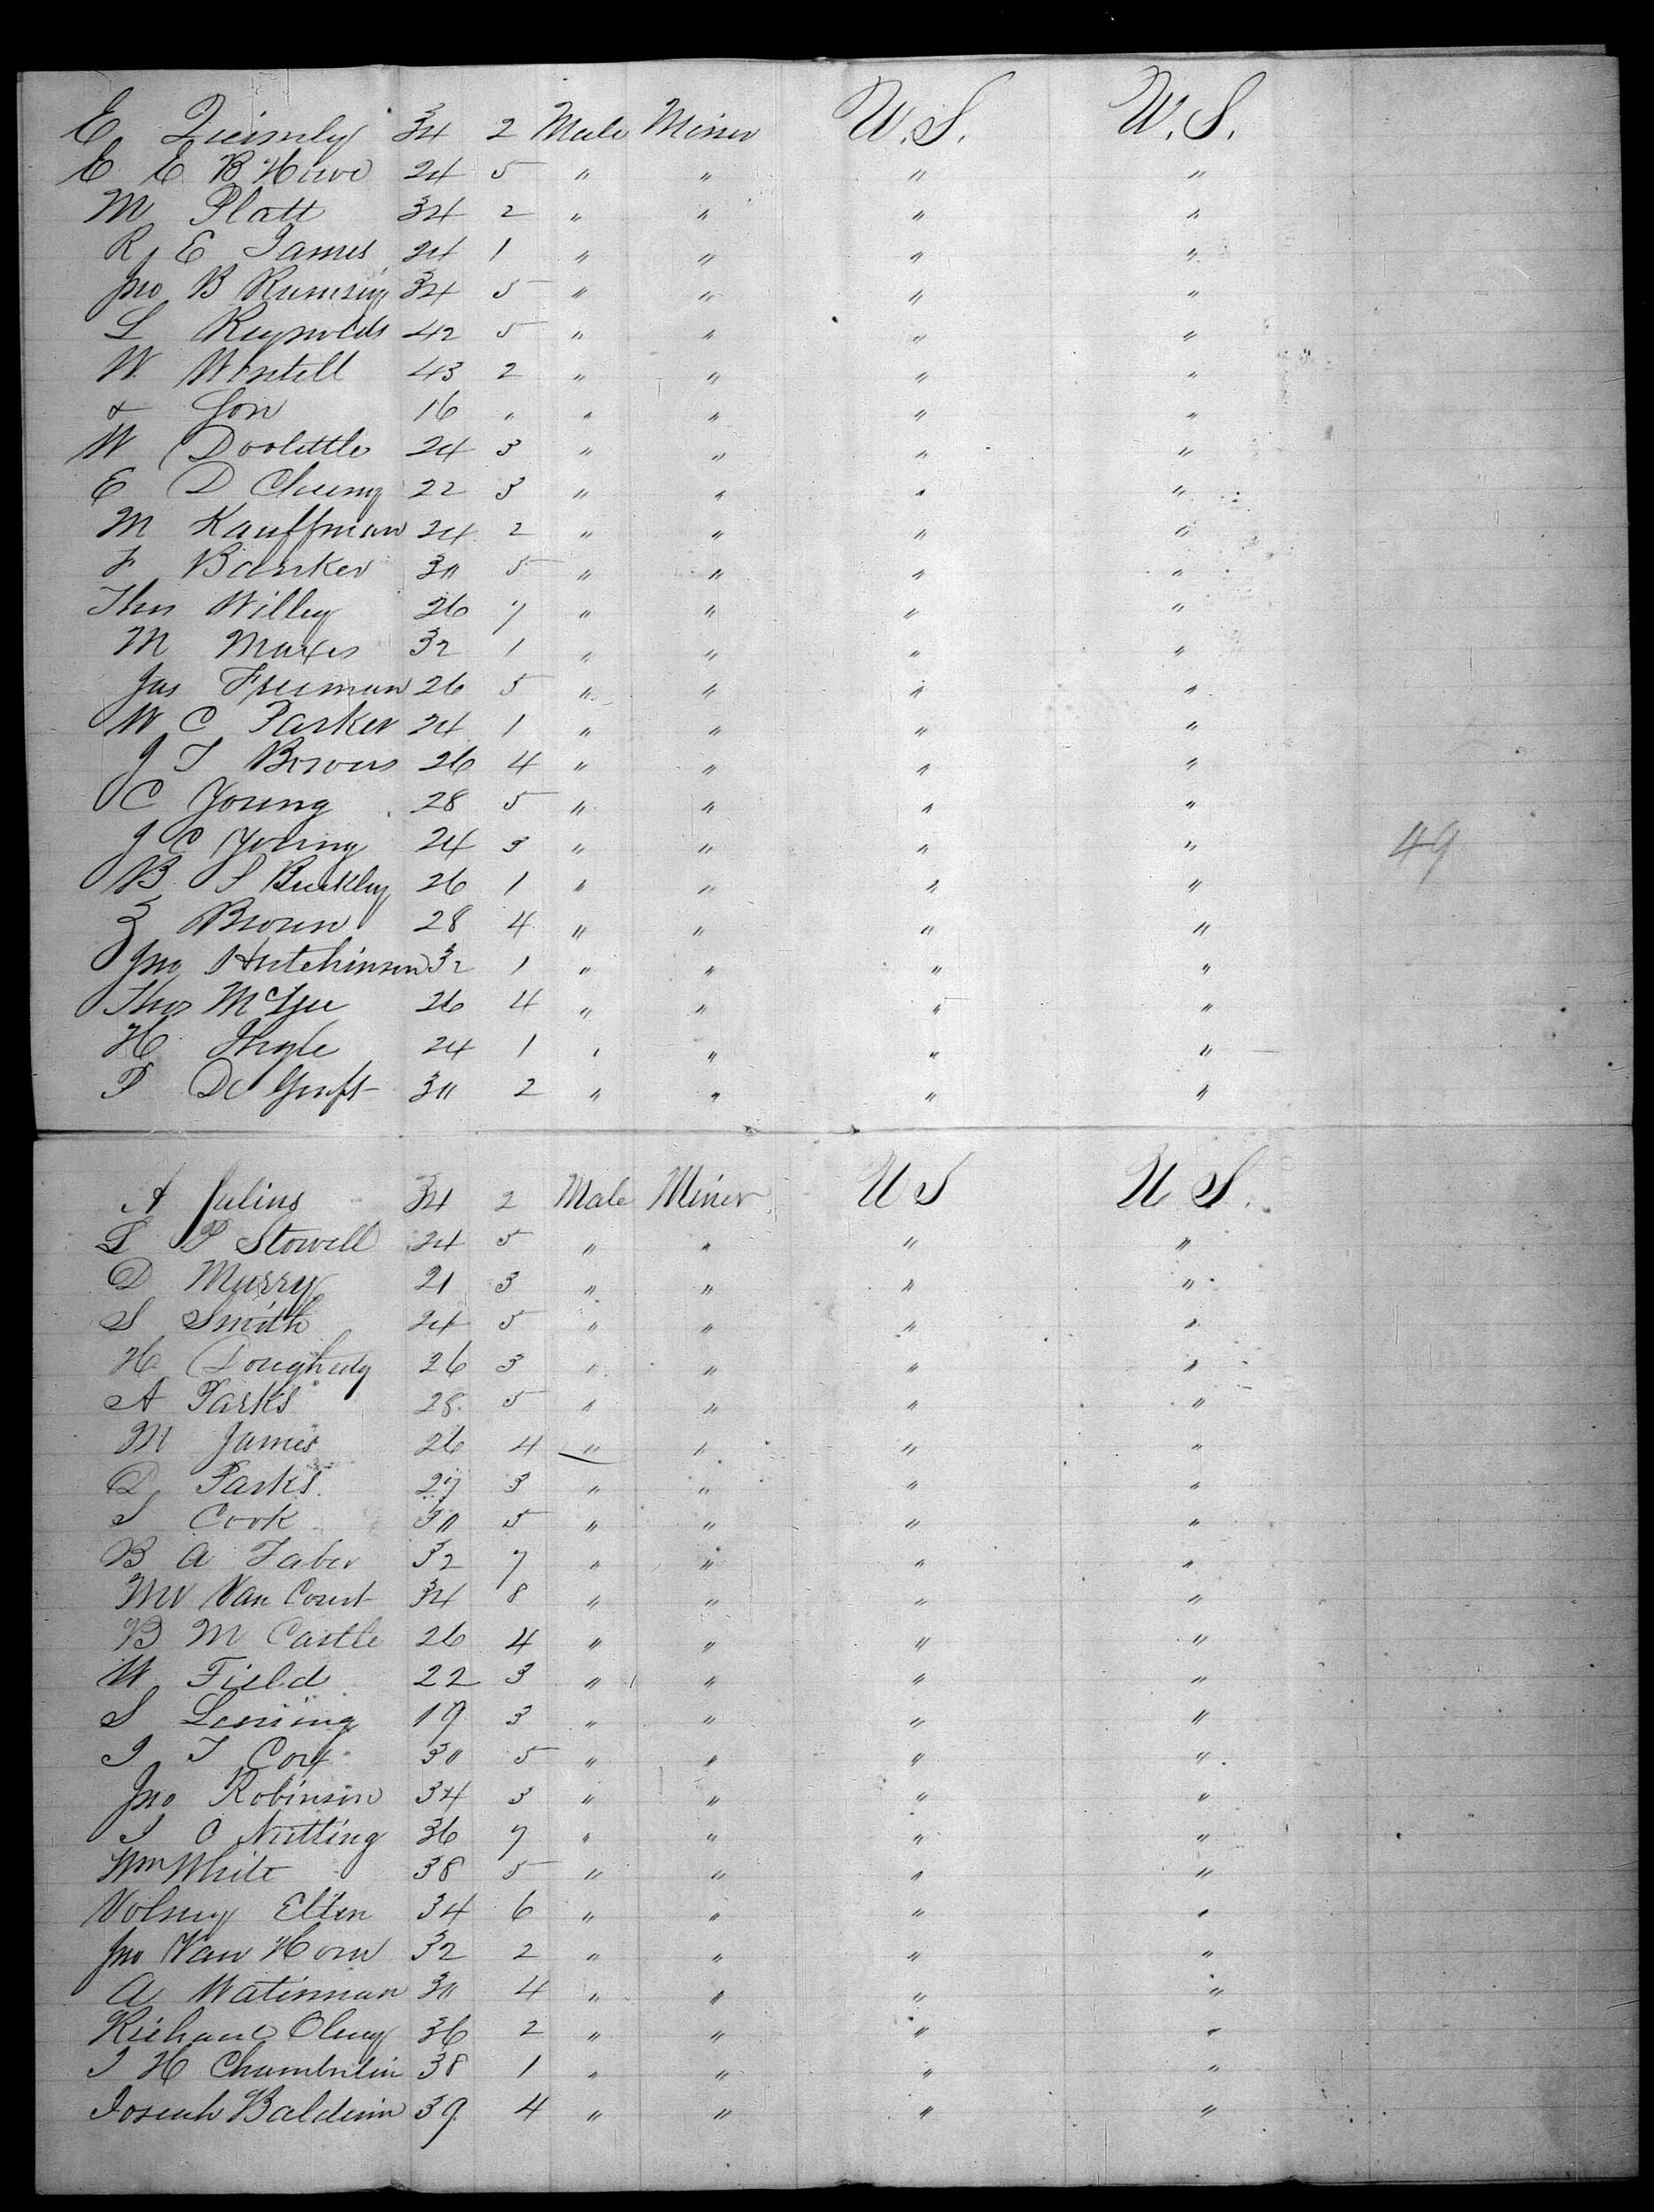 E Quimly 34 2 Male Miner U.S. U.S.
E E B Howe 24 5 " " " "
M Platt 34 2 " " " "
R E James 24 1 " " " "
Jno B Rumsey 34 5 " " " "
L Reynolds 42 5 " " " "
W 43 2 " " " "
& Son 16 " " " " "
W Doolittle 24 3 " " " "
E D Cheeny 22 3 " " " "
M Kauffman 24 2 " " " "
F Banker 30 5 " " " "
Thos Willey 26 7 " " " "
M 32 1 " " " "
Jas Freeman 26 5 " " " "
W C Parker 24 1 " " " "
J T Bowers 26 4 " " " "
C Young 28 5 " " " "
J C Young 24 3 " " " " 49
B S Buckley 26 1 " " " "
Z Brown 28 4 " " " "
Jno Hutchinson 32 1 " " " "
Thos McGee 26 4 " " " "
H Ingle 24 1 " " " "
P De Groft 30 2 " " " "
A Julius 34 2 Male Miner U S U S.
L P Stowell 24 5 " " " "
D Murry 21 3 " " " "
S Smith 24 5 " " " "
H Doughedy 26 3 " " " "
A Parks 28 5 " " " "
M James 26 4 " " " "
D Parks 27 3 " " " "
S Cook 30 5 " " " "
B A Faber 32 7 " " " "
Mr Van Court 34 8 " " " "
B M Castle 26 4 " " " "
W Field 22 3 " " " "
S 19 3 " " " "
I T Cox 30 5 " " " "
Jno Robinson 34 3 " " " "
I C Nutting 36 7 " " " "
Wm White 38 5 " " " "
Volney Elten 34 6 " " " "
Jno Van Horn 32 2 " " " "
A Waterman 30 4 " " " "
Richard Olney 36 2 " " " "
I H Chamberlin 38 1 " " " "
Joseph Baldwin 39 4 " " " "